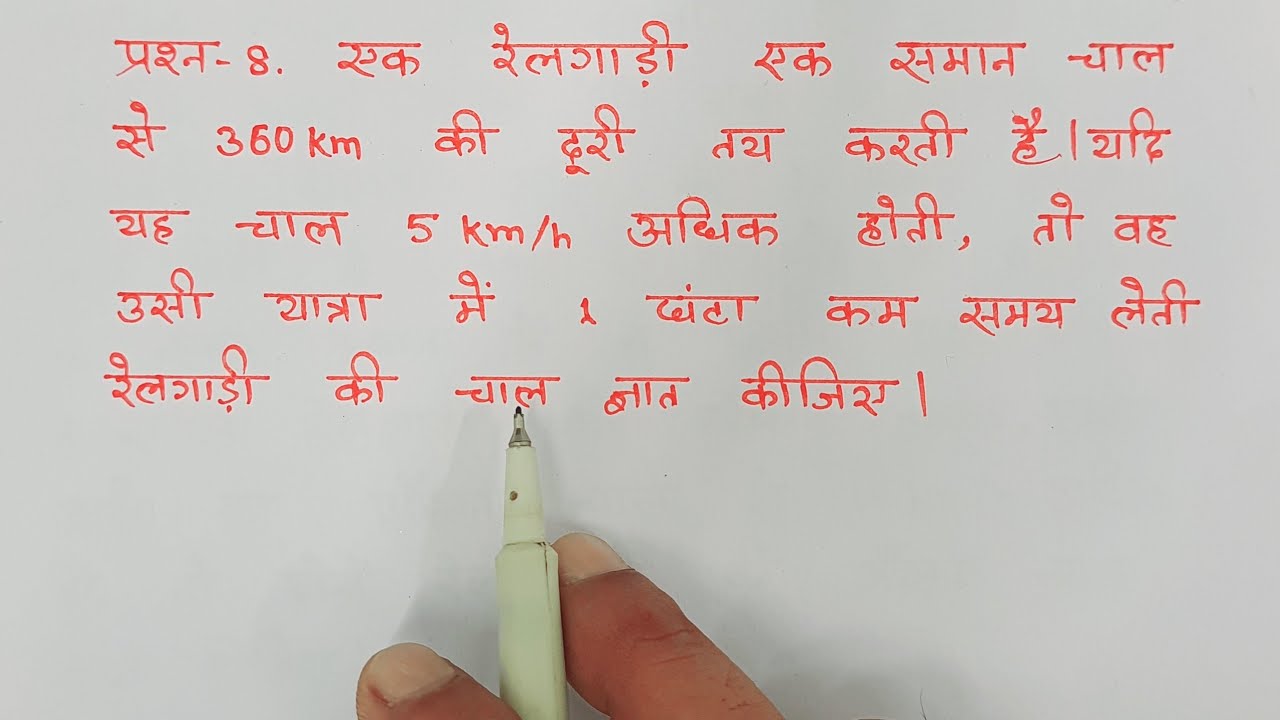 प्रश्न-8. एक रेलगाड़ी एक समान चाल
से 360 km की दूरी तय करती है। यदि
यह चाल 5 km/h अधिक होती, तो वह
उसी यात्रा में 1 घंटा कम समय लेती
रेलगाड़ी की चाल ज्ञात कीजिए।